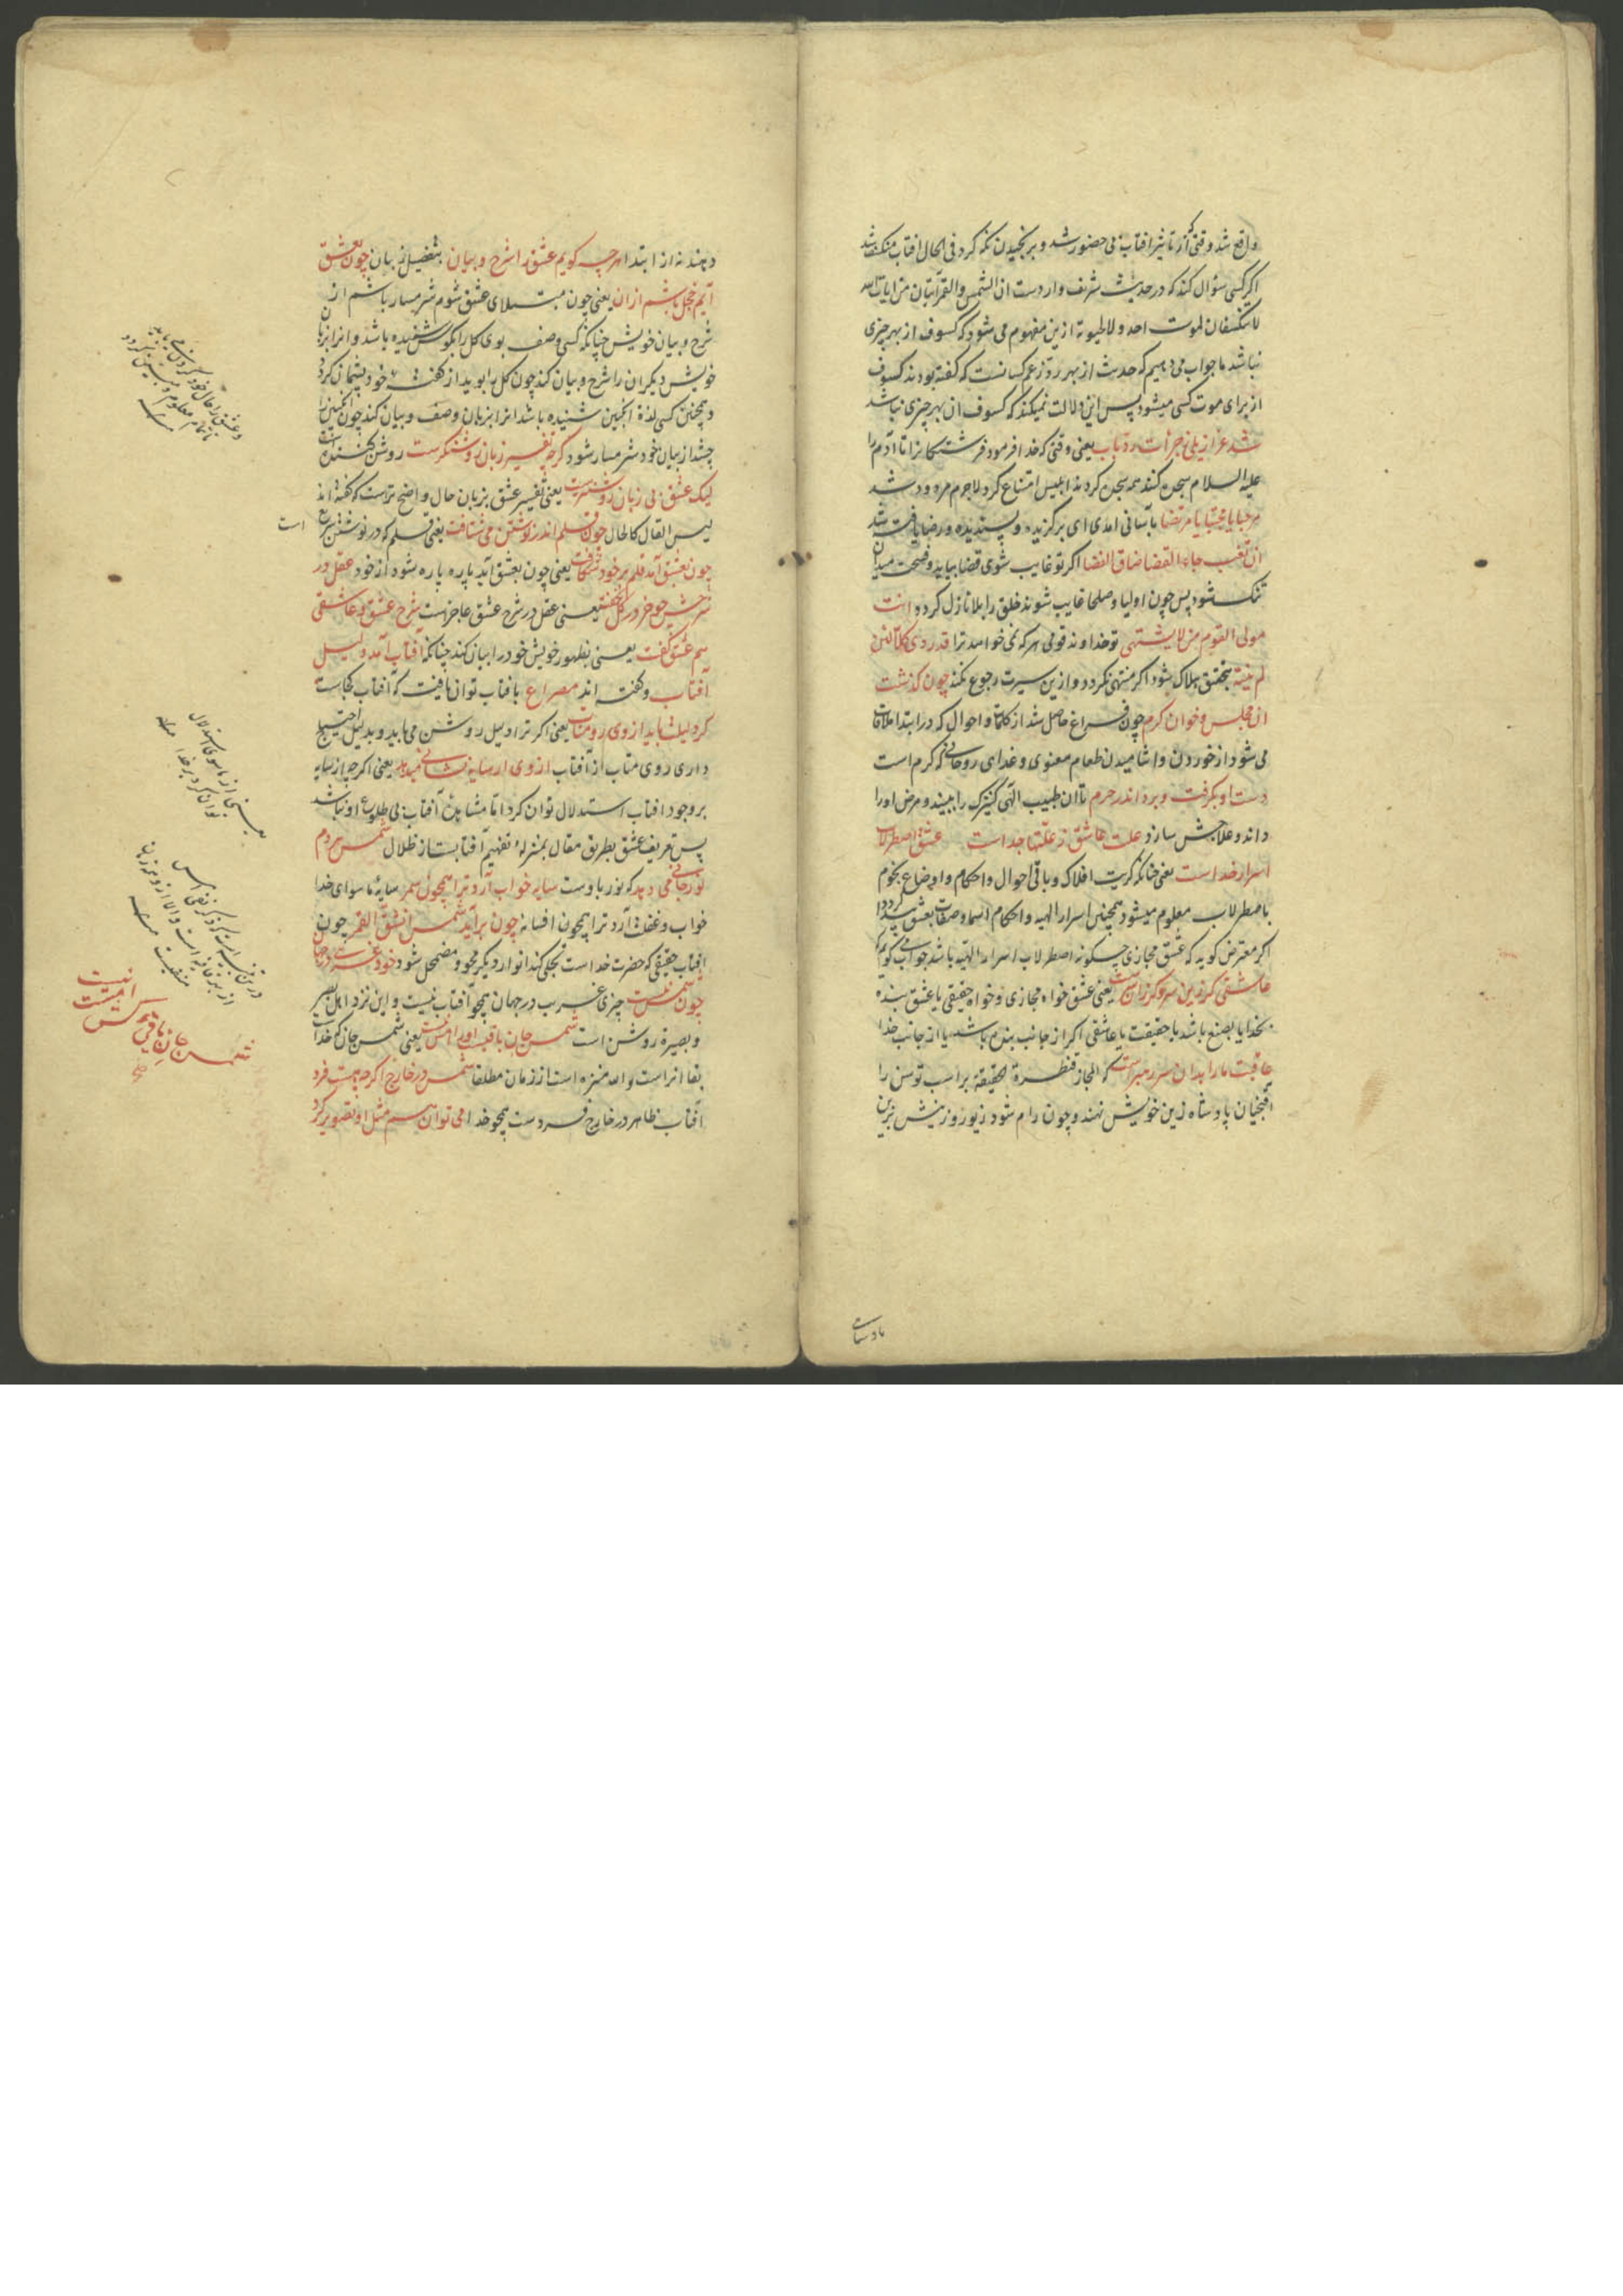 واقع شد وقتی که از تاثیر افتاب بی حضور شد و برنجیدن نکه کرد فی الحال افتاب منکسف شد
اکر کسی سؤال کند که در حدیث شریف وارد است ان الشمس والقمر آیتان من ایات الله
لا ینکسفان لموت احد ولا لحیوته ازین مفهوم می شود که کسوف از بهر چیزی
نباشد ما جواب می دهیم که حدیث از بهر رد زعم کسانست که کفته بودند کسوف
از برای موت کسی میشود پس این دلالت نمیکند که کسوف از بهر چیزی نباشد
شد عزازیلی ز جرأت رد باب یعنی وقتی که خدا فرمود فرشتکانرا تا آدم را
علیه السلام سجده کنند همه سجده کردند ابلیس امتناع کرد لاجرم مردود شد
مرحبا یا مجتبی یا مرتضا بآسانی امدی ای برکزیده و پسندیده و رضا یافته شده
ان تغب جاء القضا ضاق الفضا اکر تو غایب شوی قضا بیاید و فسحت میدان
تنک شود پس چون اولیا و صلحا غایب شوند خلق را بلا نازل کردد انت
مولی القوم من لا یشتهی تو خداوند قومی هر که نمی خواهد ترا قد ردی کلا لئن
لم ینته بتحقیق هلاک شود اکر منتهی نکردد و ازین سیرت رجوع نکند چون کذشت
ان مجلس و خوان کرم چون فراغ حاصل شد از کلمات و احوال که در ابتدا ملاقات
می شود از خوردن و اشامیدن طعام معنوی و غدای روحانی که کرم است
دست او بکرفت و برد اندر حرم تا ان طبیب الهی کنیزک را ببیند و مرض او را
داند و علاجش سازد علت عاشق ز علتها جداست عشق اصطرلاب
اسرار خداست یعنی چنانکه کریت افلاک و باقی احوال و احکام و اوضاع نجوم
باصطرلاب معلوم میشود همچنین اسرار الهیه و احکام اسما و صفات بعشق پیدا کردد
اکر معترض کوید که عشق مجازی چکونه اصطرلاب اسرار الهیه باشد جواب می کویم که
عاشقی کر زین سر و کر زان سرست یعنی عشق خواه مجازی و خواه حقیقی یا عشق بنده
بخدا یا بصنع باشد یا حقیقت یا عاشقی اکر از جانب بنده باشد یا از جانب خدا
عاقبت ما را بدان سر رهبرست که المجاز قنطرة الحقیقة بر اسب توسن را
پادشاه زین خویش نهند و چون رام شود زیور و زینش زرین
پادشاه
هرچه کویم عشق را شرح و بیان بتفضیل نه بیان چون بعشق
آیم خجل باشم ازان یعنی چون مبتلای عشق شوم شرمسار باشم از
شرح و بیان خویش چنانکه کسی وصف بوی کل را بکوش شنیده باشد و انرا بزبان
خویش دیکران را شرح و بیان کند چون کل را بوید از کفته خود پشیمان کردد
و همچنین کسی لذة انکبین شنیده باشد انرا بزبان وصف و بیان کند چون انکبین را
چشد از بیان خود شرمسار شود کرچه تفسیر زبان روشنکرست روشن کننده است
لیک عشق بی زبان روشنترست یعنی تفسیر عشق بزبان حال واضح تر است که کفته اند
لیس القال کالحال چون قلم اندر نوشتن می شتافت یعنی قلم که در نوشتن سریع است
چون بعشق آمد قلم بر خود شکافت یعنی چون بعشق آید پاره پاره شود از خود عقل در
شرحش چو خر در کل بخفت یعنی عقل در شرح عشق عاجز است شرح عشق و عاشقی
هم عشق کفت یعنی بظهور خویش خود را بیان کند چنانکه آفتاب آمد دلیل
آفتاب و کفته اند مصراع بافتاب توان یافت که آفتاب کجاست
کر دلیلت باید از وی رو متاب یعنی اکر ترا دلیل روشن می باید و بدلیل احتیاج
داری روی متاب از آفتاب از وی ار سایه نشانی میدهد یعنی اکرچه از سایه
بر وجود افتاب استدلال توان کرد اما مشاهده آفتاب بی طلوع او نباشد
پس تعریف عشق بطریق مقال بمنزله تفهیم آفتابست از ظلال شمس هر دم
نور جانی می دهد که نور باوست سایه خواب آرد ترا همچون سمر سایه ما سوای خدا
خواب و غفلت آرد ترا همچون افسانه چون برآید شمس انشق القمر چون
افتاب حقیقی که حضرت خداست تجلی کند انوار دیکر محو و مضمحل شود خود غریبی در جهان
چون شمس نیست چیزی غریب در جهان همچو آفتاب نیست و این نزد اهل بصر
و بصیرة روشن است شمس جان باقیست اورا امس نیست یعنی شمس جان که خداست
بقا انراست و الله منزه است از زمان مطلقا شمس در خارج اکرچه هست فرد
آفتاب ظاهر در خارج فردست همچو خدا می توان هم مثل او تصویر کرد
یعنی از ما سوی استدلال
توان کرد بر خدا
شمس جان باقی کش امس نیست
صح